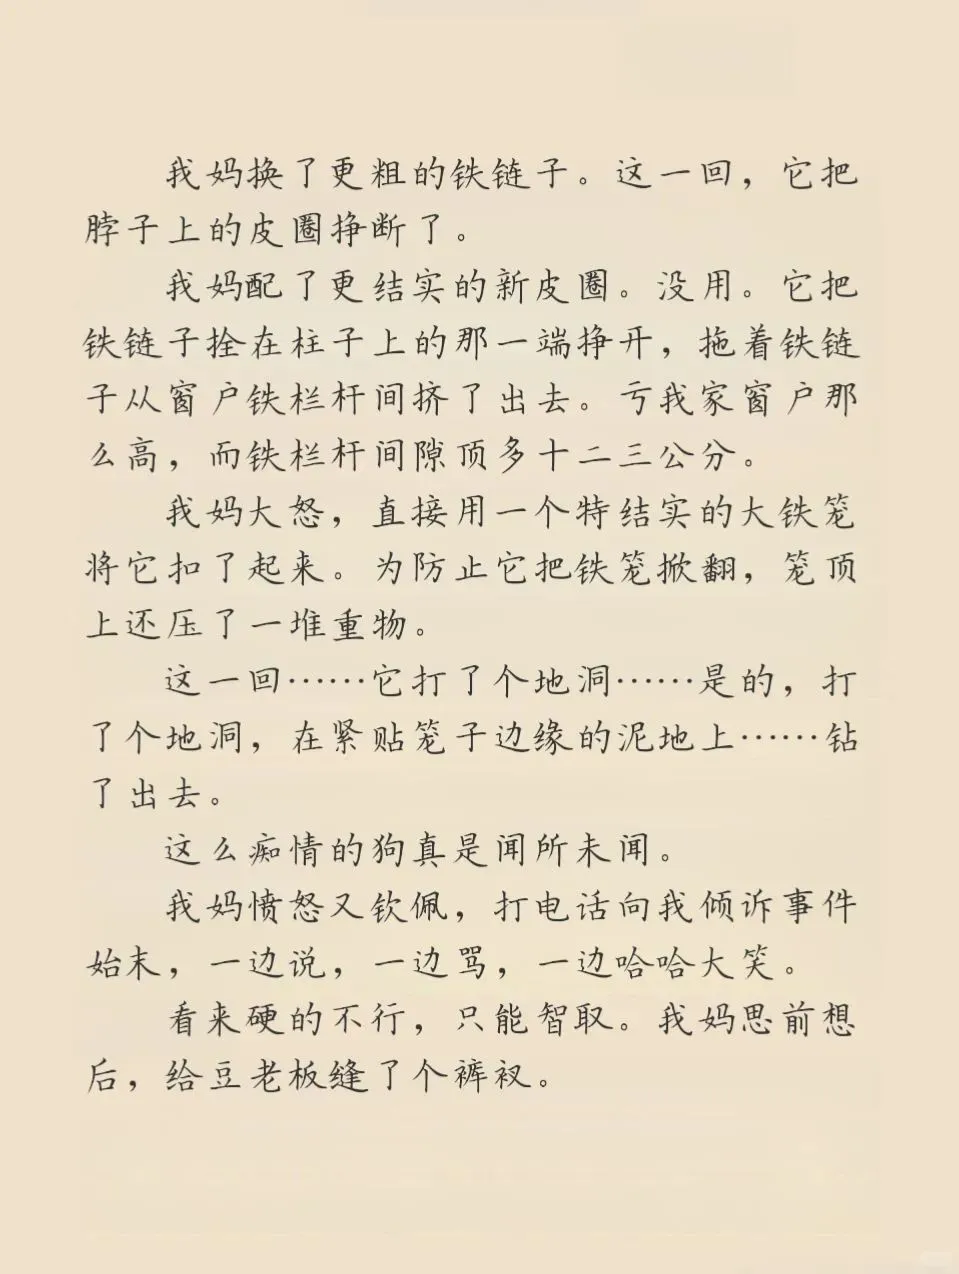 我妈换了更粗的铁链子。这一回，它把
脖子上的皮圈挣断了。
我妈配了更结实的新皮圈。没用。它把
铁链子拴在柱子上的那一端挣开，拖着铁链
子从窗户铁栏杆间挤了出去。亏我家窗户那
么高，而铁栏杆间隙顶多十二三公分。
我妈大怒，直接用一个特结实的大铁笼
将它扣了起来。为防止它把铁笼掀翻，笼顶
上还压了一堆重物。
这一回……它打了个地洞……是的，打
了个地洞，在紧贴笼子边缘的泥地上……钻
了出去。
这么痴情的狗真是闻所未闻。
我妈愤怒又钦佩，打电话向我倾诉事件
始末，一边说，一边骂，一边哈哈大笑。
看来硬的不行，只能智取。我妈思前想
后，给豆老板缝了个裤衩。